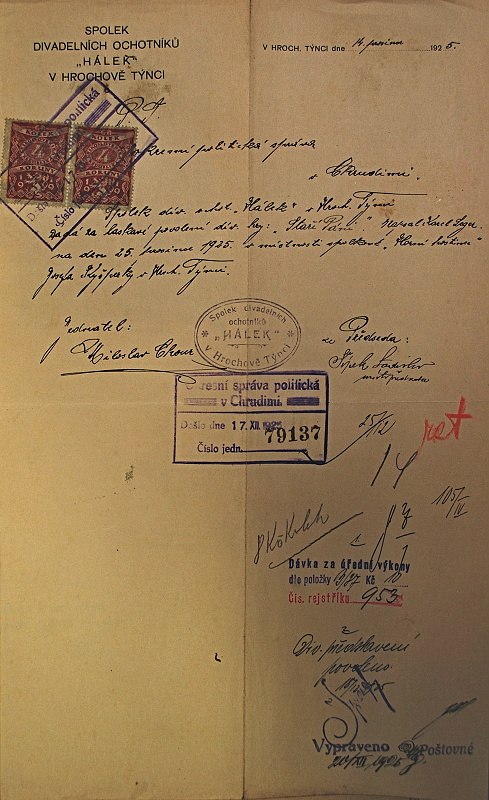 SPOLEK
DIVADELNÍCH OCHOTNÍKŮ
„HÁLEK"
V HROCHOVĚ TÝNCI
V HROCH. TÝNCI dne 14. prosince 1925.
okresní politická správa
v Chrudimi.
Spolek div. ochot. „Hálek" v Hroch. Týnci
žádá za laskavé povolení div. hry: „Staří Páni." Napsal Karel
na den 25. prosince 1925. v místnosti spolkové „Horní hostinec"
Josefa v Hroch. Týnci.
Jednatel:
Miloslav
za Předseda:
Ladislav
místopředseda
Spolek divadelních
ochotníků
„HÁLEK"
v Hrochově Týnci
Okresní správa politická
v Chrudimi.
Došlo dne 17. XII. 192
Číslo jedn. 79137
25/12
14
105/II
Dávka za úřední výkony
dle položky Kč 10
Čís. rejstříku 953
Div. představení
povoleno.
Vypraveno Poštovné
20/XII 1925